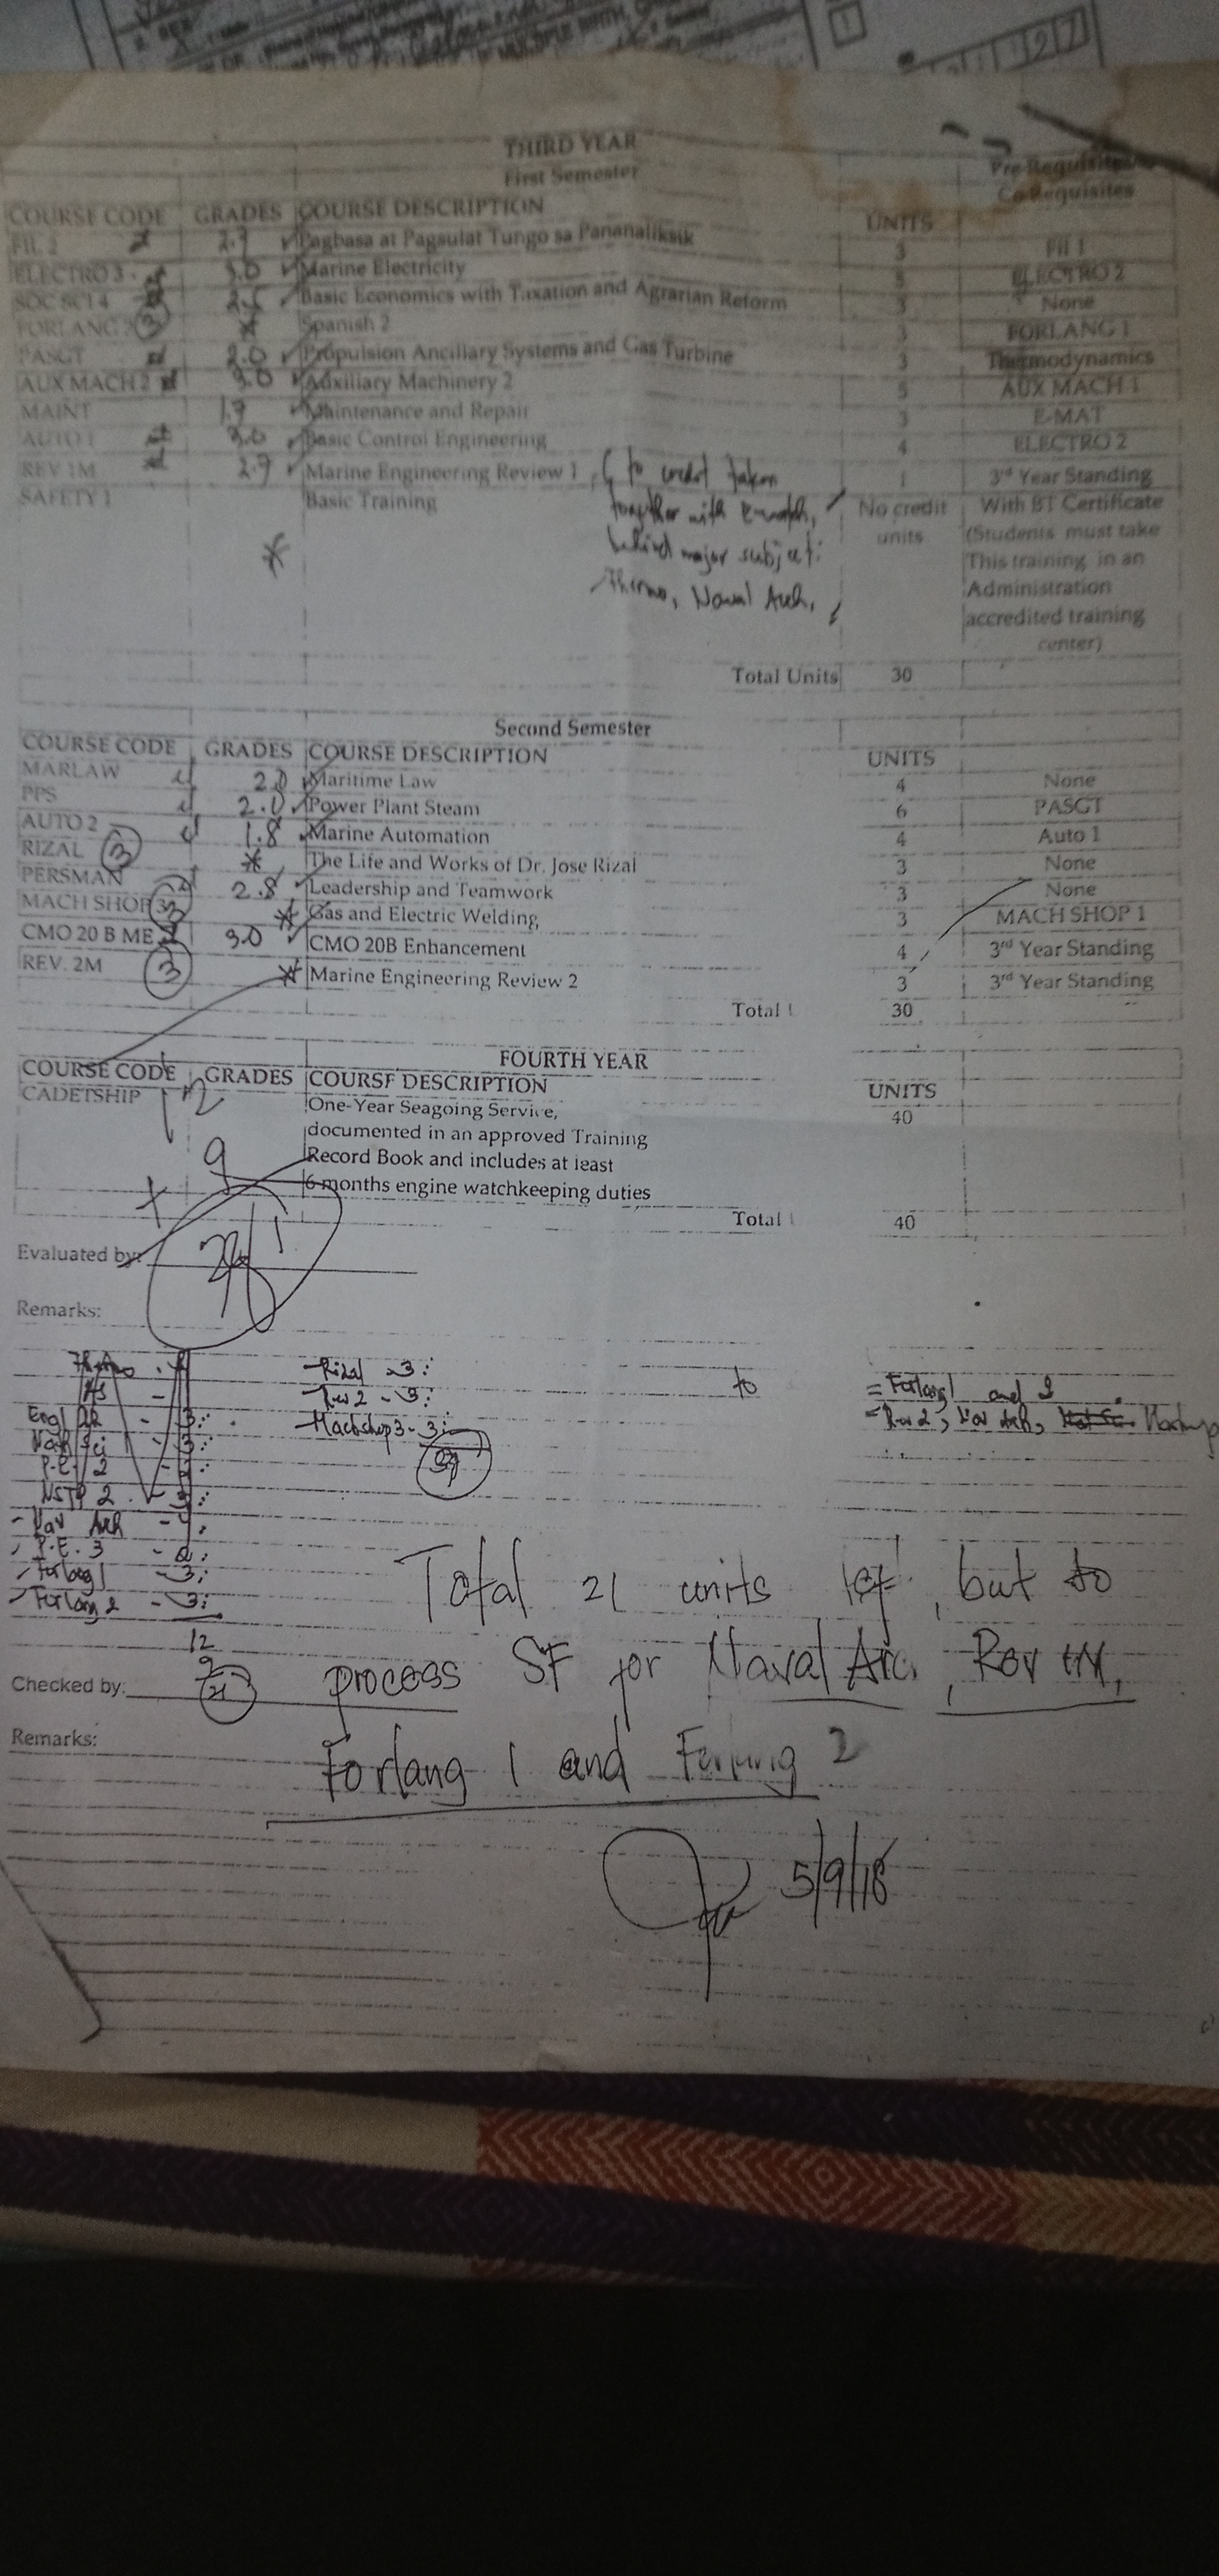 THIRD YEAR
First Semester
Pre-Requisites
Co-Requisites
COURSE CODE GRADES COURSE DESCRIPTION UNITS
FIL 2 2.7 Pagbasa at Pagsulat Tungo sa Pananaliksik 3 Fil 1
ELECTRO 3 3.0 Marine Electricity 5 ELECTRO 2
SOC SCI 4 Basic Economics with Taxation and Agrarian Reform 3 None
FORLANG 2 3 * Spanish 2 3 FORLANG 1
PASGT 2.0 Propulsion Ancillary Systems and Gas Turbine 3 Thermodynamics
AUX MACH 2 3.0 Auxiliary Machinery 2 5 AUX MACH 1
MAINT 1.7 Maintenance and Repair 3 E-MAT
AUTO 1 3.0 Basic Control Engineering 4 ELECTRO 2
REV 1M 2.7 Marine Engineering Review 1 1 3rd Year Standing
to credit taken
together with
behind major subject:
Thermo, Naval Arch,
SAFETY 1 * Basic Training No credit units With BT Certificate
(Students must take
This training in an
Administration
accredited training
center)
Total Units 30
Second Semester
COURSE CODE GRADES COURSE DESCRIPTION UNITS
MARLAW 2.0 Maritime Law 4 None
PPS 2.0 Power Plant Steam 6 PASGT
AUTO 2 1.8 Marine Automation 4 Auto 1
RIZAL 3 * The Life and Works of Dr. Jose Rizal 3 None
PERSMAN 2.8 Leadership and Teamwork 3 None
MACH SHOP 3 * Gas and Electric Welding, 3 MACH SHOP 1
CMO 20 B ME 3.0 CMO 20B Enhancement 4 3rd Year Standing
REV. 2M 3 * Marine Engineering Review 2 3 3rd Year Standing
Total 30
FOURTH YEAR
COURSE CODE GRADES COURSE DESCRIPTION UNITS
CADETSHIP One-Year Seagoing Service, 40
documented in an approved Training
Record Book and includes at least
6 months engine watchkeeping duties
Total 40
12
9
Evaluated by:
Remarks:
Rizal - 3
Rev 2 - 3
Machshop 3 - 3
to
= Forlang 1 and 2
= Rev 2, Nav Arch,
Engl
Nat Sci - 3
P.E. 2
NSTP 2 - 3
Nav Arch
P.E. 3 - 2
Forlang 1 - 3
Forlang 2 - 3
12
9
21
Total 21 units lef, but to
process SF for Naval Arc.,
Forlang 1 and Forlang 2
Checked by:
Remarks:
5/9/18